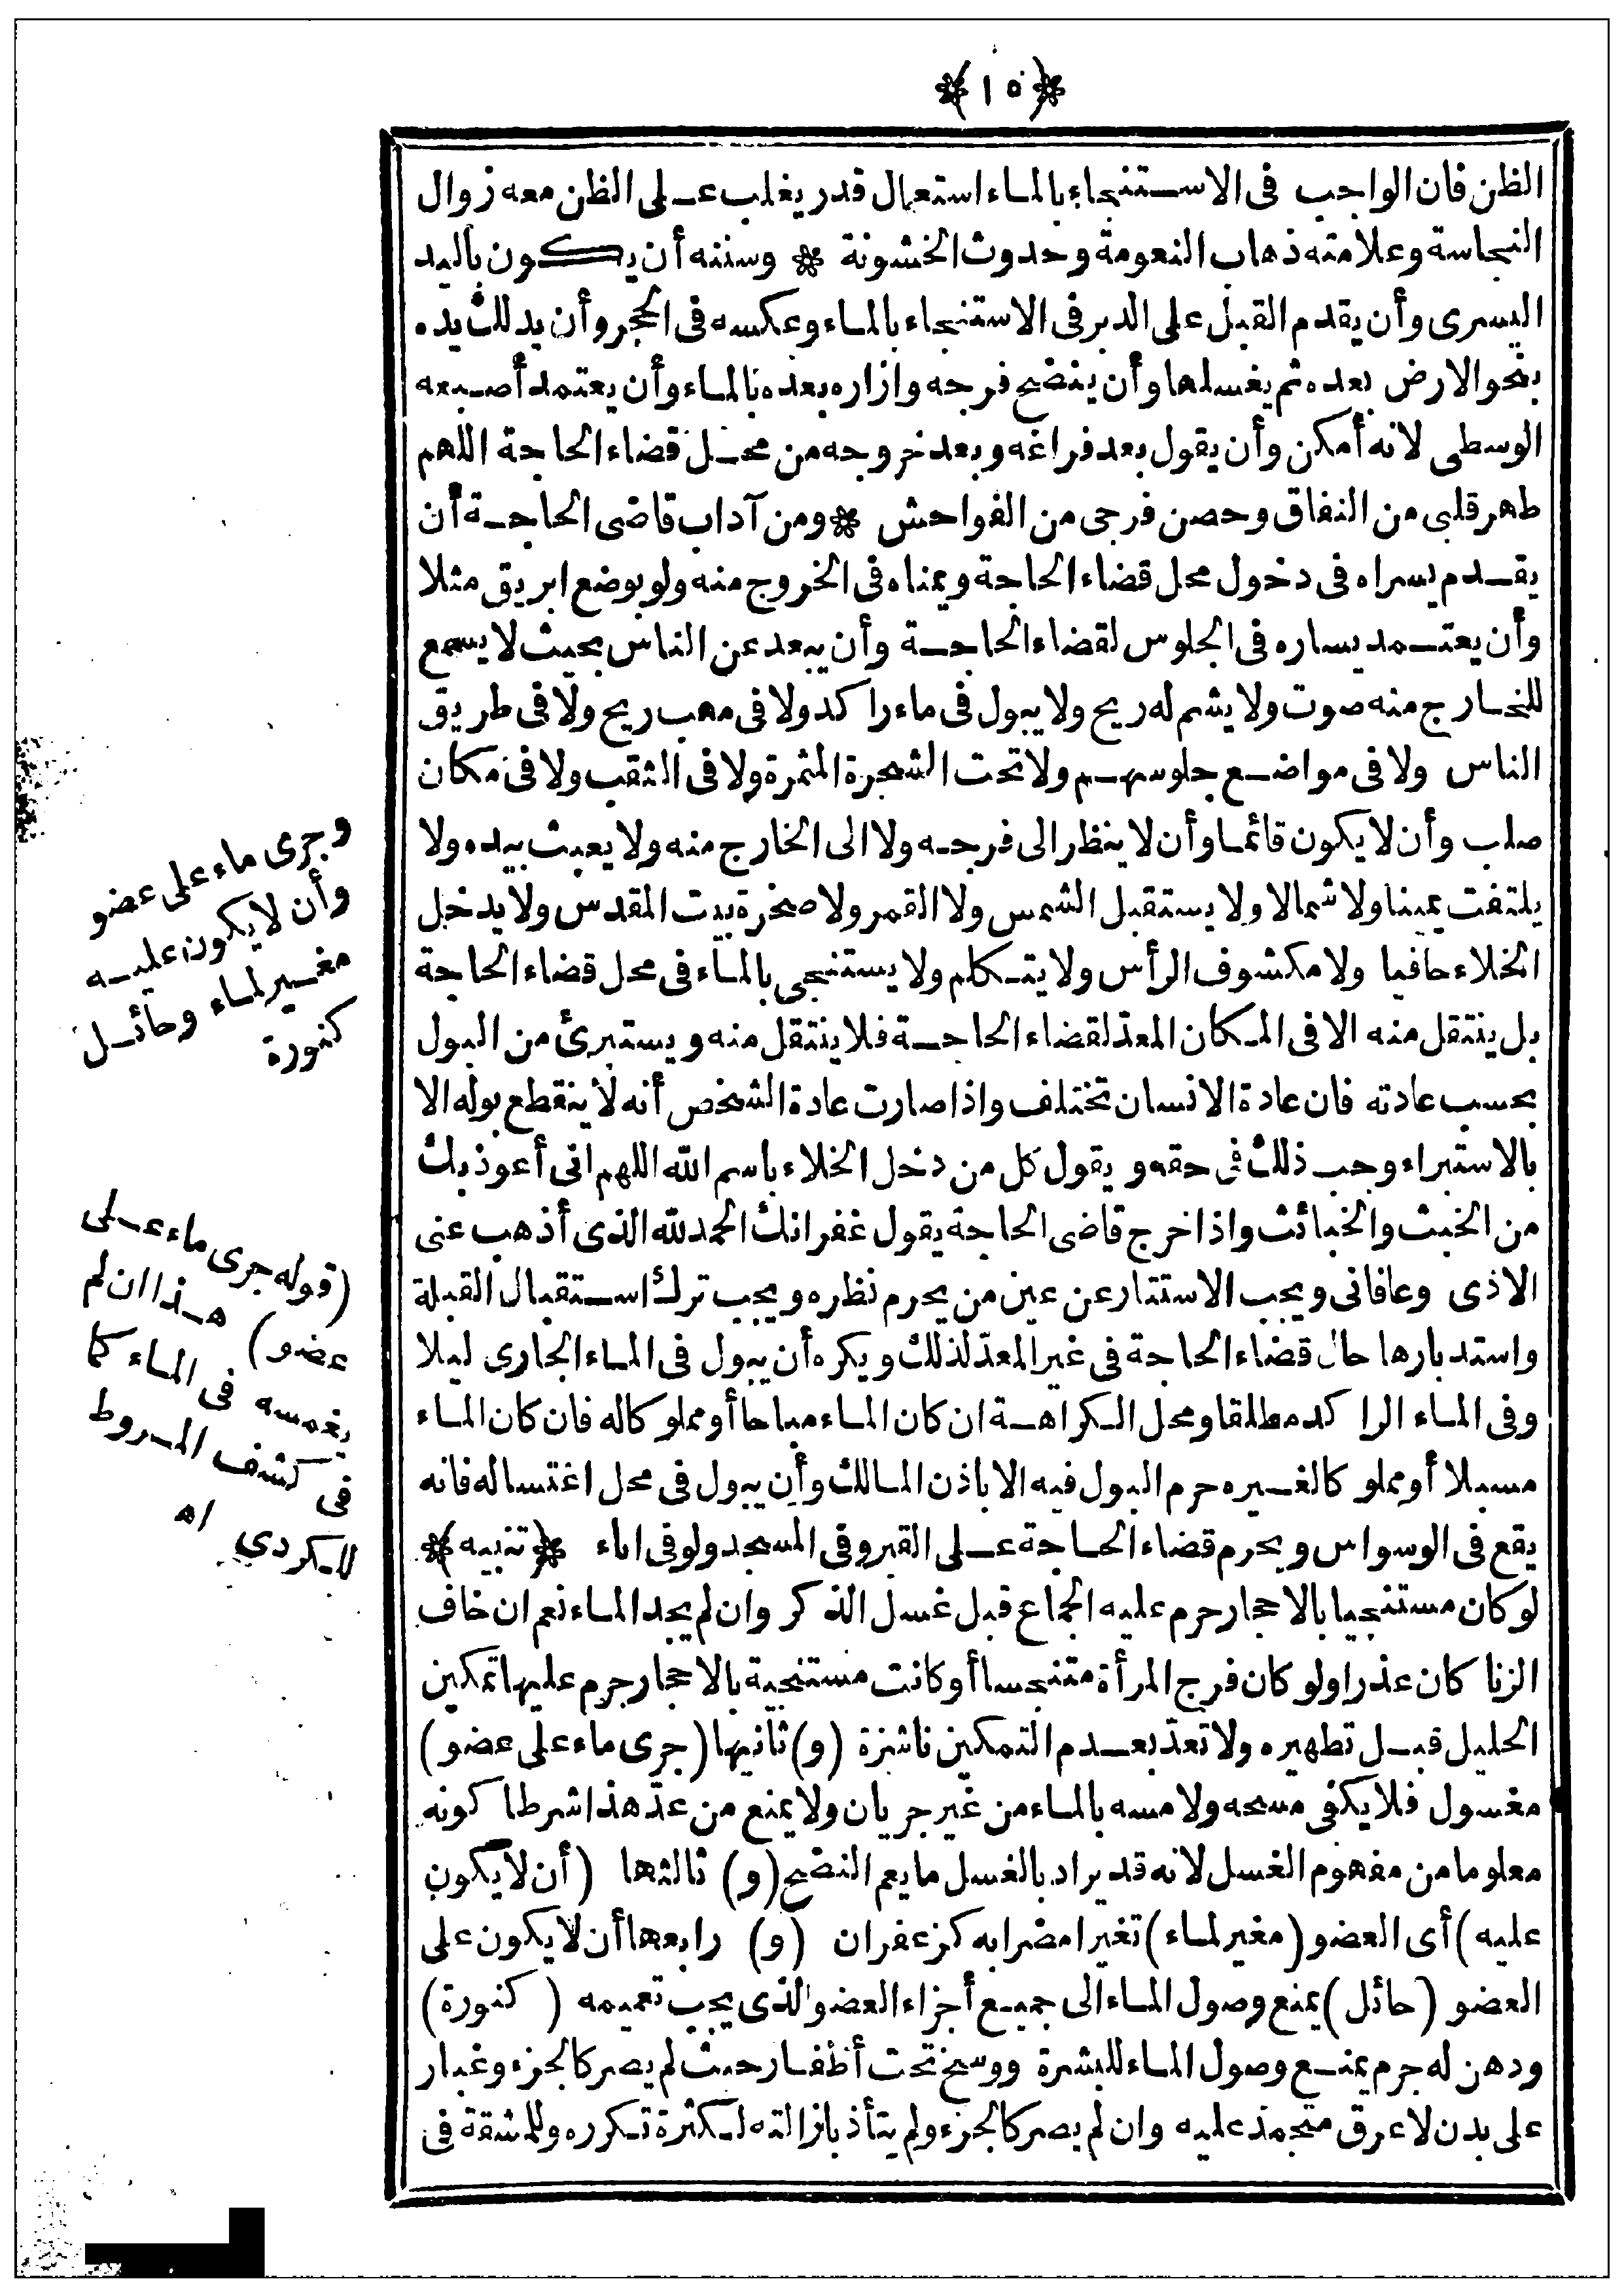 ﴿١٥﴾
الظن فان الواجب فى الاستنجاء بالماء استعمال قدر يغلب على الظن معه زوال
النجاسة وعلامته ذهاب النعومة وحدوث الخشونة * وسننه أن يكون باليد
اليسرى وأن يقدم القبل على الدبر فى الاستنجاء بالماء وعكسه فى الحجر وأن يدلك يده
بنحو الارض بعده ثم يغسلها وأن ينضح فرجه وازاره بعده بالماء وأن يعتمد أصبعه
الوسطى لانه أمكن وأن يقول بعد فراغه وبعد خروجه من محل قضاء الحاجة اللهم
طهر قلبى من النفاق وحصن فرجى من الفواحش * ومن آداب قاضى الحاجة أن
يقدم يسراه فى دخول محل قضاء الحاجة ويمناه فى الخروج منه ولو بوضع ابريق مثلا
وأن يعتمد يساره فى الجلوس لقضاء الحاجة وأن يبعد عن الناس بحيث لا يسمع
للخارج منه صوت ولا يشم له ريح ولا يبول فى ماء راكد ولا فى مهب ريح ولا فى طريق
الناس ولا فى مواضع جلوسهم ولا تحت الشجرة المثمرة ولا فى الثقب ولا فى مكان
صلب وأن لا يكون قائما وأن لا ينظر الى فرجه ولا الى الخارج منه ولا يعبث بيده ولا
يلتفت يمينا ولا شمالا ولا يستقبل الشمس ولا القمر ولا صخرة بيت المقدس ولا يدخل
الخلاء حافيا ولا مكشوف الرأس ولا يتكلم ولا يستنجى بالماء فى محل قضاء الحاجة
بل ينتقل منه الا فى المكان المعد لقضاء الحاجة فلا ينتقل منه ويستبرئ من البول
بحسب عادته فان عادة الانسان تختلف واذا صارت عادة الشخص أنه لا ينقطع بوله الا
بالاستبراء وجب ذلك فى حقه ويقول كل من دخل الخلاء باسم الله اللهم انى أعوذ بك
من الخبث والخبائث واذا خرج قاضى الحاجة يقول غفرانك الحمد لله الذى أذهب عنى
الاذى وعافانى ويجب الاستتار عن عين من يحرم نظره ويجب ترك استقبال القبلة
واستدبارها حال قضاء الحاجة فى غير المعدّ لذلك ويكره أن يبول فى الماء الجارى ليلا
وفى الماء الراكد مطلقا ومحل الكراهة ان كان الماء مباحا أو مملوكا له فان كان الماء
مسبلا أو مملوكا لغيره حرم البول فيه الا باذن المالك وأن يبول فى محل اغتساله فانه
يقع فى الوسواس ويحرم قضاء الحاجة على القبر وفى المسجد ولو فى اناء ﴿تنبيه﴾
لو كان مستنجيا بالاحجار حرم عليه الجماع قبل غسل الذكر وان لم يجد الماء نعم ان خاف
الزنا كان عذرا ولو كان فرج المرأة متنجسا أو كانت مستنجية بالاحجار حرم عليها تمكين
الحليل قبل تطهيره ولا تعدّ بعدم التمكين ناشزة (و) ثانيها (جرى ماء على عضو)
مغسول فلا يكفى مسحه ولا مسه بالماء من غير جريان ولا يمنع من عدّ هذا شرطا كونه
معلوما من مفهوم الغسل لانه قد يراد بالغسل ما يعم النضح (و) ثالثها (أن لا يكون
عليه) أى العضو (مغير لماء) تغيرا مضرا به كزعفران (و) رابعها أن لا يكون على
العضو (حائل) يمنع وصول الماء الى جميع أجزاء العضو الذى يجب تعميمه (كنورة)
ودهن له جرم يمنع وصول الماء للبشرة ووسخ تحت أظفار حيث لم يصر كالجزء وغبار
على بدن لا عرق متجمد عليه وان لم يصر كالجزء ولم يتأذ بازالته لكثرة تكرره وللمشقة فى
وجرى ماء على عضو
وأن لا يكون عليه
مغير لماء وحائل
كنورة
(قوله جرى ماء على
عضو) هذا ان لم
يغمسه فى الماء كما
فى كشف المروط
للكردي اه